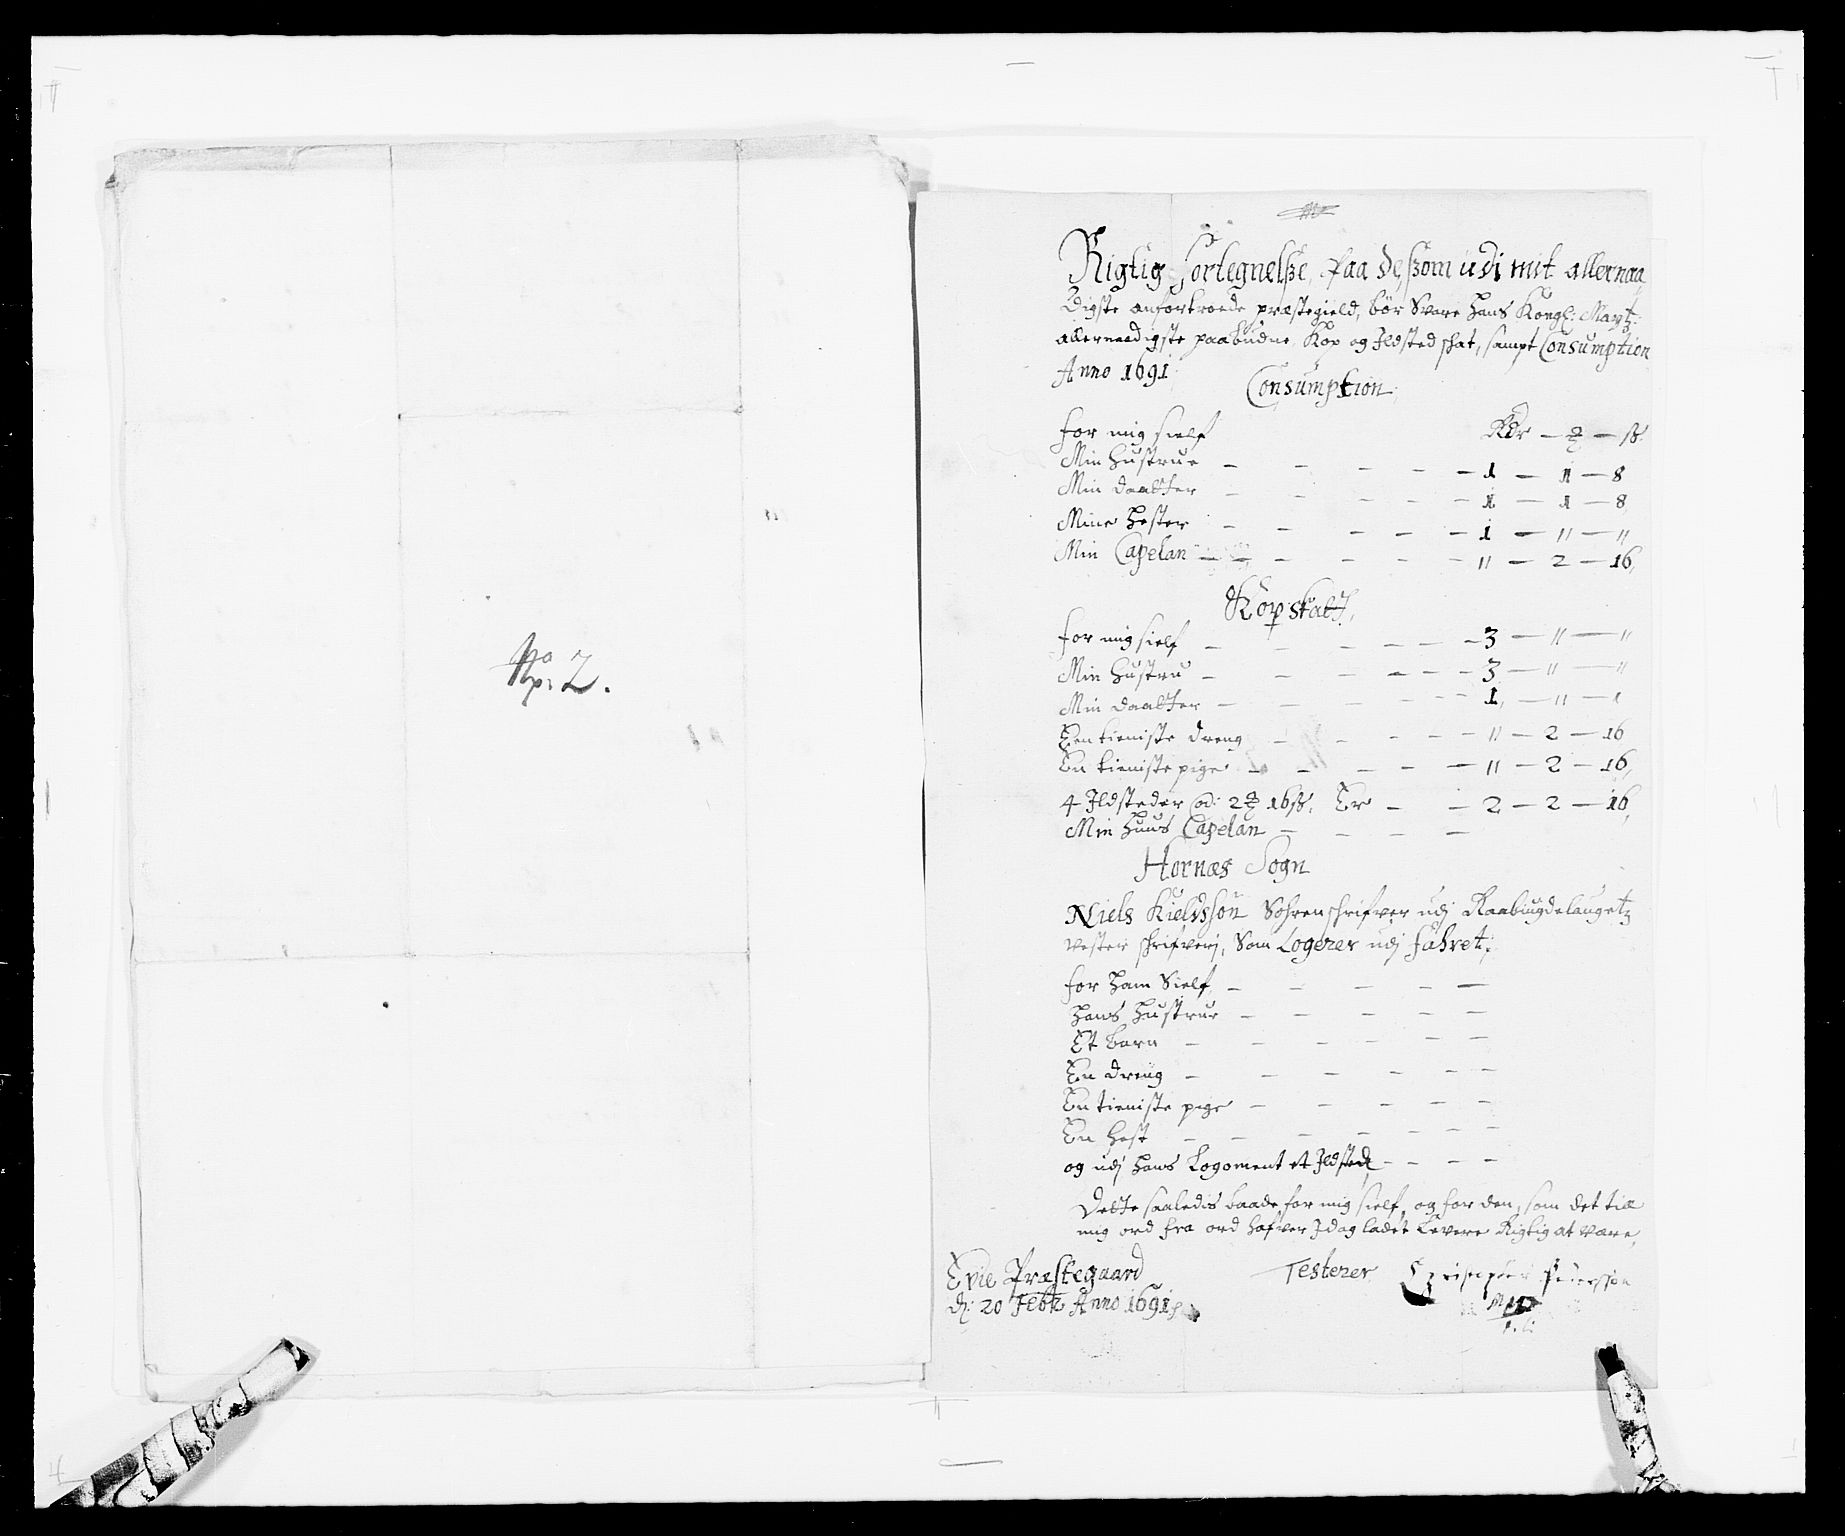 No 2.
Rigtig Fortegnelsse, paa de, ssom udi mit allernaa¬
digste anfortroede præstegield, bør Svare Hans Kongl: Maytz:
allernaadigste paabudne Kop og Ildsted schat, sampt Consumption
Anno 1691
Consumption
for mig sielf Rdr — — ß.
Min Hustrue — — — — — 1 — 1 — 8
Min daatter — — — — — 1 — 1 — 8
Mine Hester — — — — — 1 — " — "
Min Capelan — — — — — " — 2 — 16,
Kopskatt,
for mig sielf — — — — — 3 — " — "
Min Hustru — — — — — 3 — " — "
Min daatter — — — — — 1, — " —
Een tieniste dreng — — — — — " — 2 — 16
En tieniste pige — — — — — " — 2 — 16,
4 Ildsteder 16 ß. Er — — 2 — 2 — 16,
Min Huus Capelan — — — —
Hornæs Sogn
Niels Kieldsøn Sohrenschrifver udj Raabiugdelaugetz
vester schrifverj, Som Logerer udj fahret,
for Ham Sielf — — — — —
Hans Hustrue — — — — —
Et barn — — — — — —
En dreng — — — — —
En tieniste pige — — — — —
En Hest — — — — — — —
og udj Hans Logoment et Ildsted — — — —
Dette saaledis baade for mig sielf, og for den, som det till
mig ord fra ord hafver Idag ladet Levere Rigtig at være,
Evie Præstegaard Testerer Pederssøn
d: 20 Febr: Anno 1691